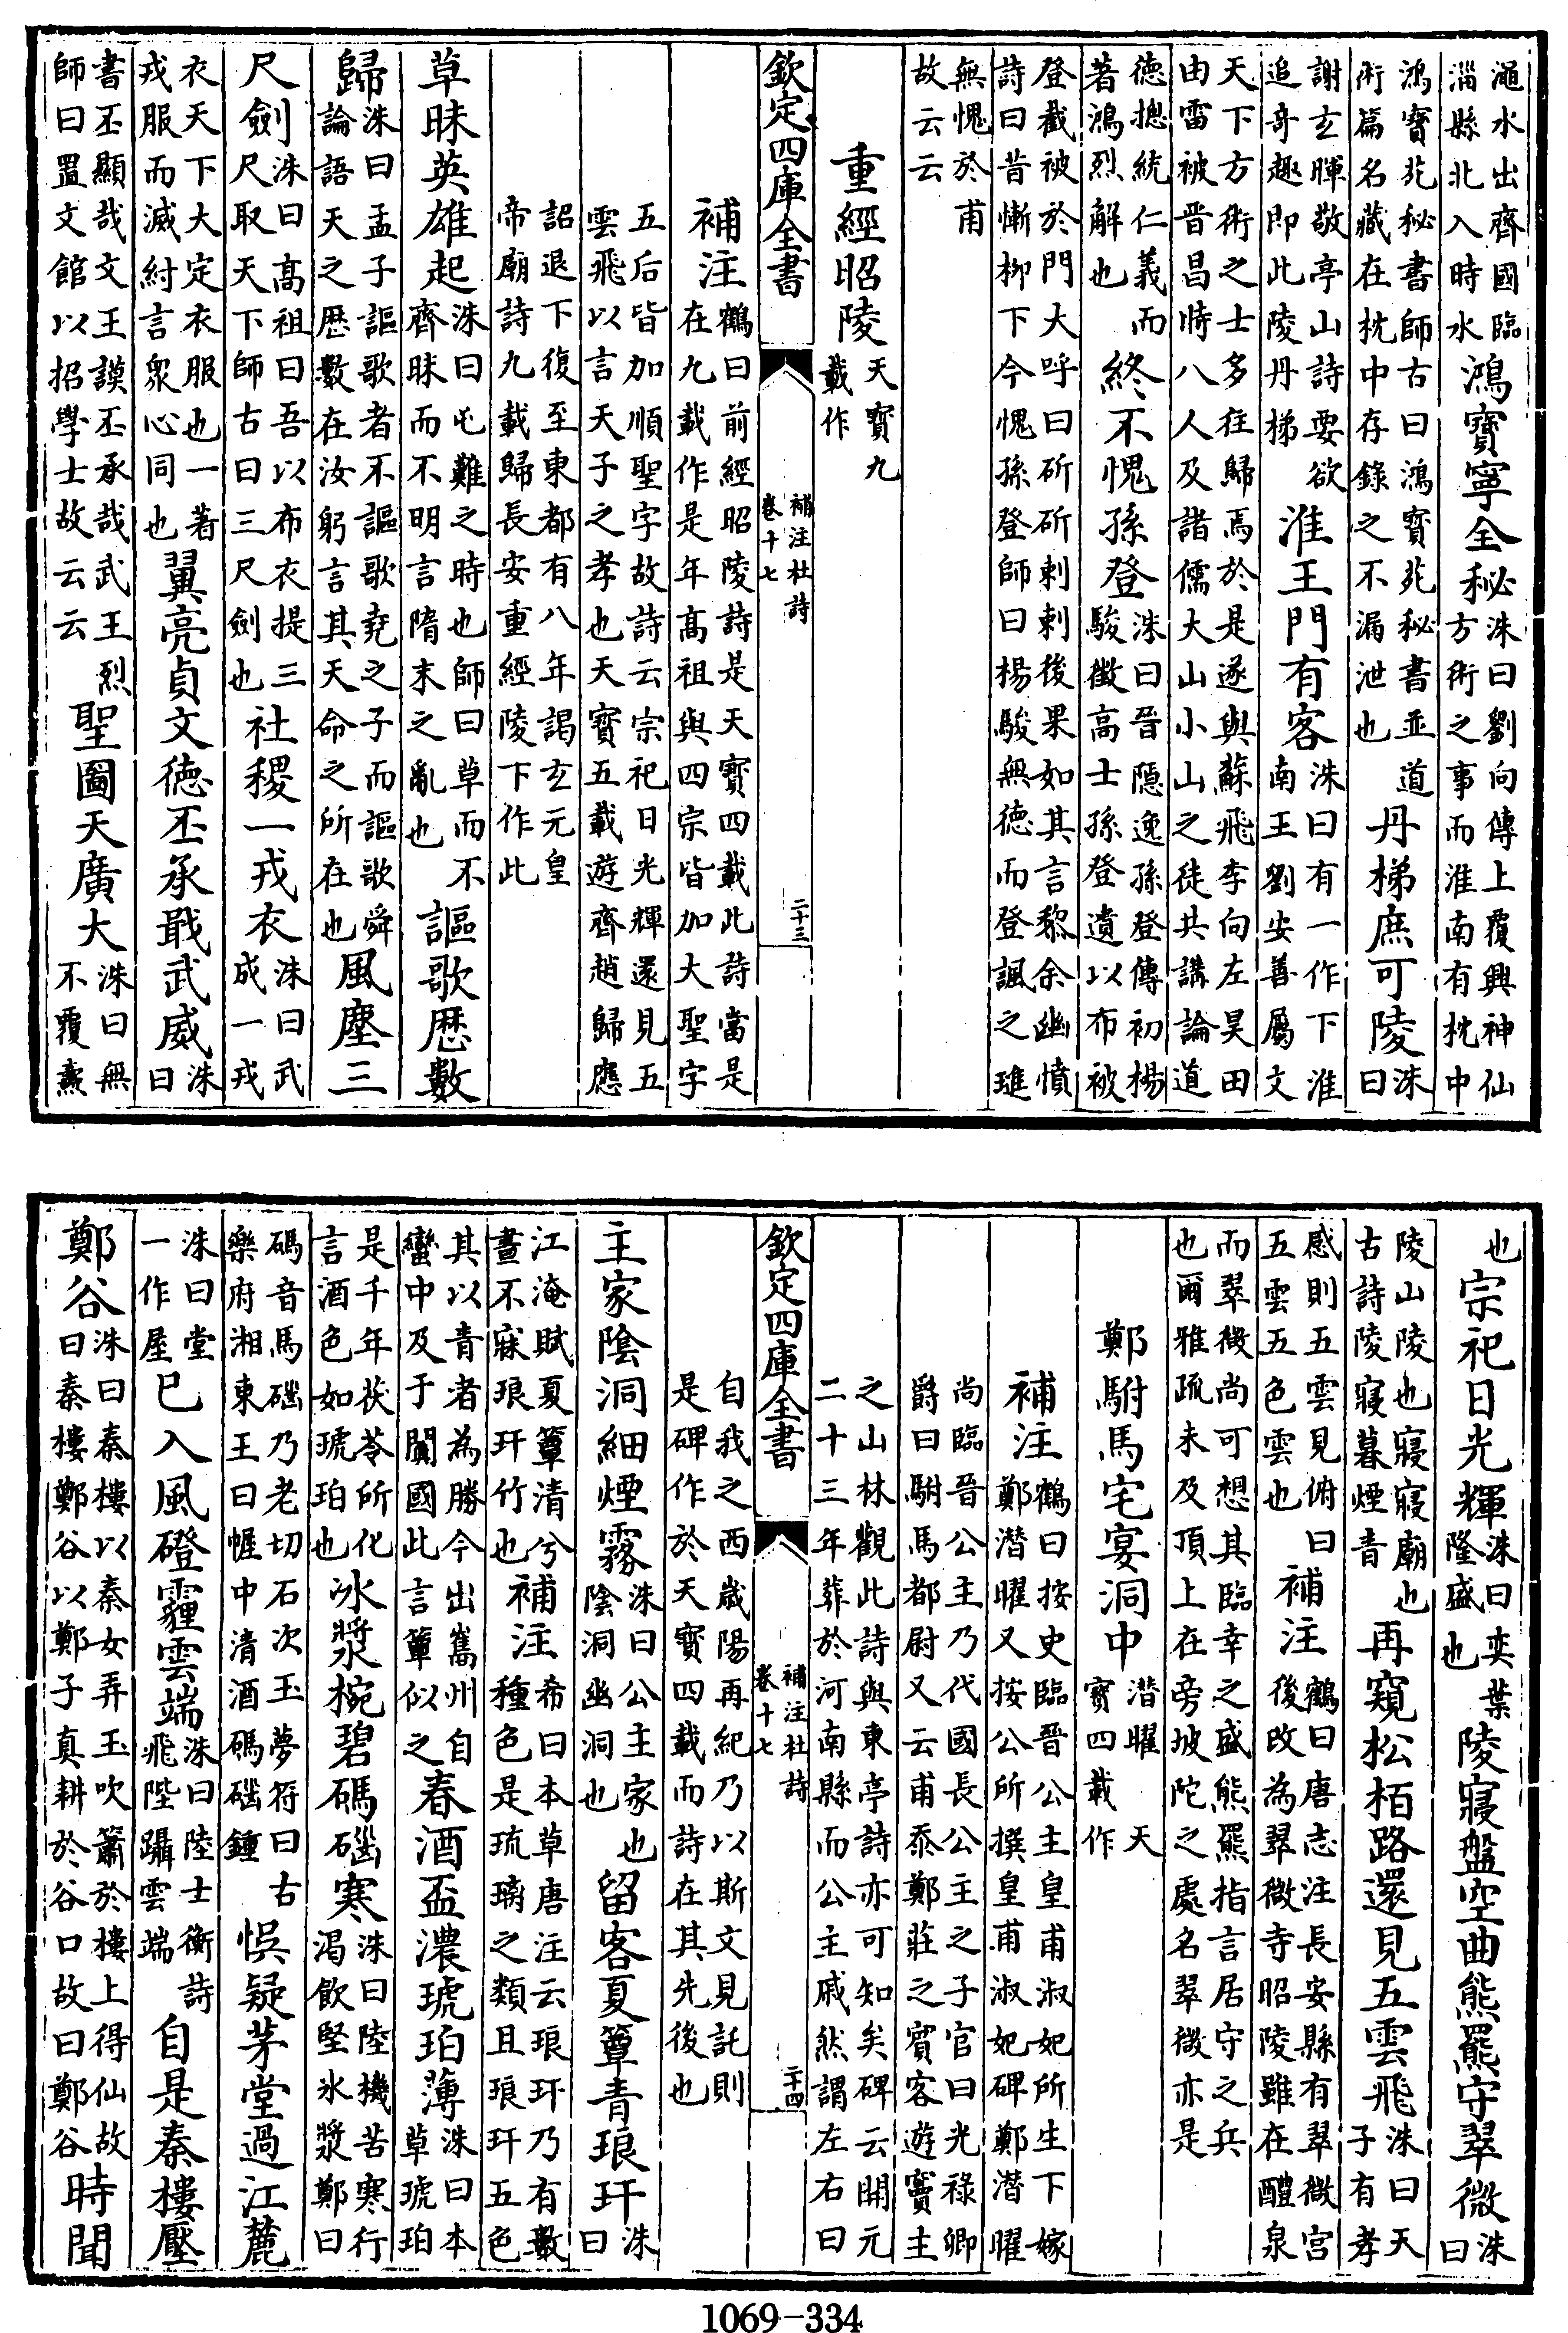 澠水出齊國臨淄縣北入時水鴻寶寧全秘洙曰劉向傳上覆興神仙方術之事而淮南有枕中
鴻寶苑秘書師古曰鴻寶苑秘書並道術篇名藏在枕中存錄之不漏泄也丹梯庶可陵洙曰
謝玄暉敬亭山詩要欲追奇趣即此陵丹梯淮王門有客洙曰有一作下淮南王劉安善屬文
天下方術之士多往歸焉於是遂與蘇飛李向左昊田由雷被晋昌恃八人及諸儒大山小山之徒共講論道
德摠統仁義而著鴻烈解也終不愧孫登洙曰晋隱逸孫登傳初楊駿徵高士孫登遺以布被
登截被於門大呼曰斫斫剌剌後果如其言黎余幽憤詩曰昔慚柳下今愧孫登師曰楊駿無德而登諷之璡
無愧於甫故云云
重經昭陵天寶九載作
欽定四庫全書 補注杜詩卷十七 二十三
補注鶴曰前經昭陵詩是天寶四載此詩當是在九載作是年高祖與四宗皆加大聖字
五后皆加順聖字故詩云宗祀日光輝還見五雲飛以言天子之孝也天寶五載遊齊趙歸應
詔退下復至東都有八年謁玄元皇帝廟詩九載歸長安重經陵下作此
草昧英雄起洙曰屯難之時也師曰草而不齊昧而不明言隋末之亂也謳歌歷數
歸洙曰孟子謳歌者不謳歌堯之子而謳歌舜論語天之歷數在汝躬言其天命之所在也風塵三
尺劍洙曰高祖曰吾以布衣提三尺取天下師古曰三尺劍也社稷一戎衣洙曰武成一戎
衣天下大定衣服也一著戎服而滅紂言眾心同也翼亮貞文德丕承戢武威洙曰
書丕顯哉文王謨丕承哉武王烈師曰置文館以招學士故云云聖圖天廣大洙曰無不覆燾
也宗祀日光輝洙曰奕葉隆盛也陵寢盤空曲熊羆守翠微洙曰
陵山陵也寢寢廟也古詩陵寢暮煙音再窺松栢路還見五雲飛洙曰天子有孝
感則五雲見俯曰五雲五色雲也補注鶴曰唐志注長安縣有翠微宮後改為翠微寺昭陵雖在醴泉
而翠微尚可想其臨幸之盛熊羆指言居守之兵也爾雅疏未及頂上在旁坡陀之處名翠微亦是
鄭駙馬宅宴洞中潛曜天寶四載作
補注鶴曰按史臨晉公主皇甫淑妃所生下嫁鄭潛曜又按公所撰皇甫淑妃碑鄭潛曜
尚臨晉公主乃代國長公主之子官曰光祿卿爵曰駙馬都尉又云甫忝鄭莊之賓客遊竇主
之山林觀此詩與東亭詩亦可知矣碑云開元二十三年葬於河南縣而公主戚然謂左右曰
自我之西歲陽再紀乃以斯文見託則是碑作於天寶四載而詩在其先後也
欽定四庫全書 補注杜詩卷十七 二十四
主家陰洞細煙霧洙曰公主家也陰洞幽洞也留客夏簟青琅玕洙曰
江淹賦夏簟清兮晝不寐琅玕竹也補注希曰本草唐注云琅玕乃有數種色是琉璃之類且琅玕五色
其以青者為勝今出嶲州自蠻中及于闐國此言簟似之春酒盃濃琥珀薄洙曰本草琥珀
是千年茯苓所化言酒色如琥珀也冰漿椀碧碼碯寒洙曰陸機苦寒行渴飲堅氷漿鄭曰
碼音馬碯乃老切石次玉夢符曰古樂府湘東王曰幄中清酒碼碯鍾悞疑茅堂過江麓
洙曰堂一作屋已入風磴霾雲端洙曰陸士衡詩飛陛躡雲端自是秦樓壓
鄭谷洙曰秦樓以秦女弄玉吹簫於樓上得仙故曰秦樓鄭谷以鄭子真耕於谷口故曰鄭谷時聞
1069-334